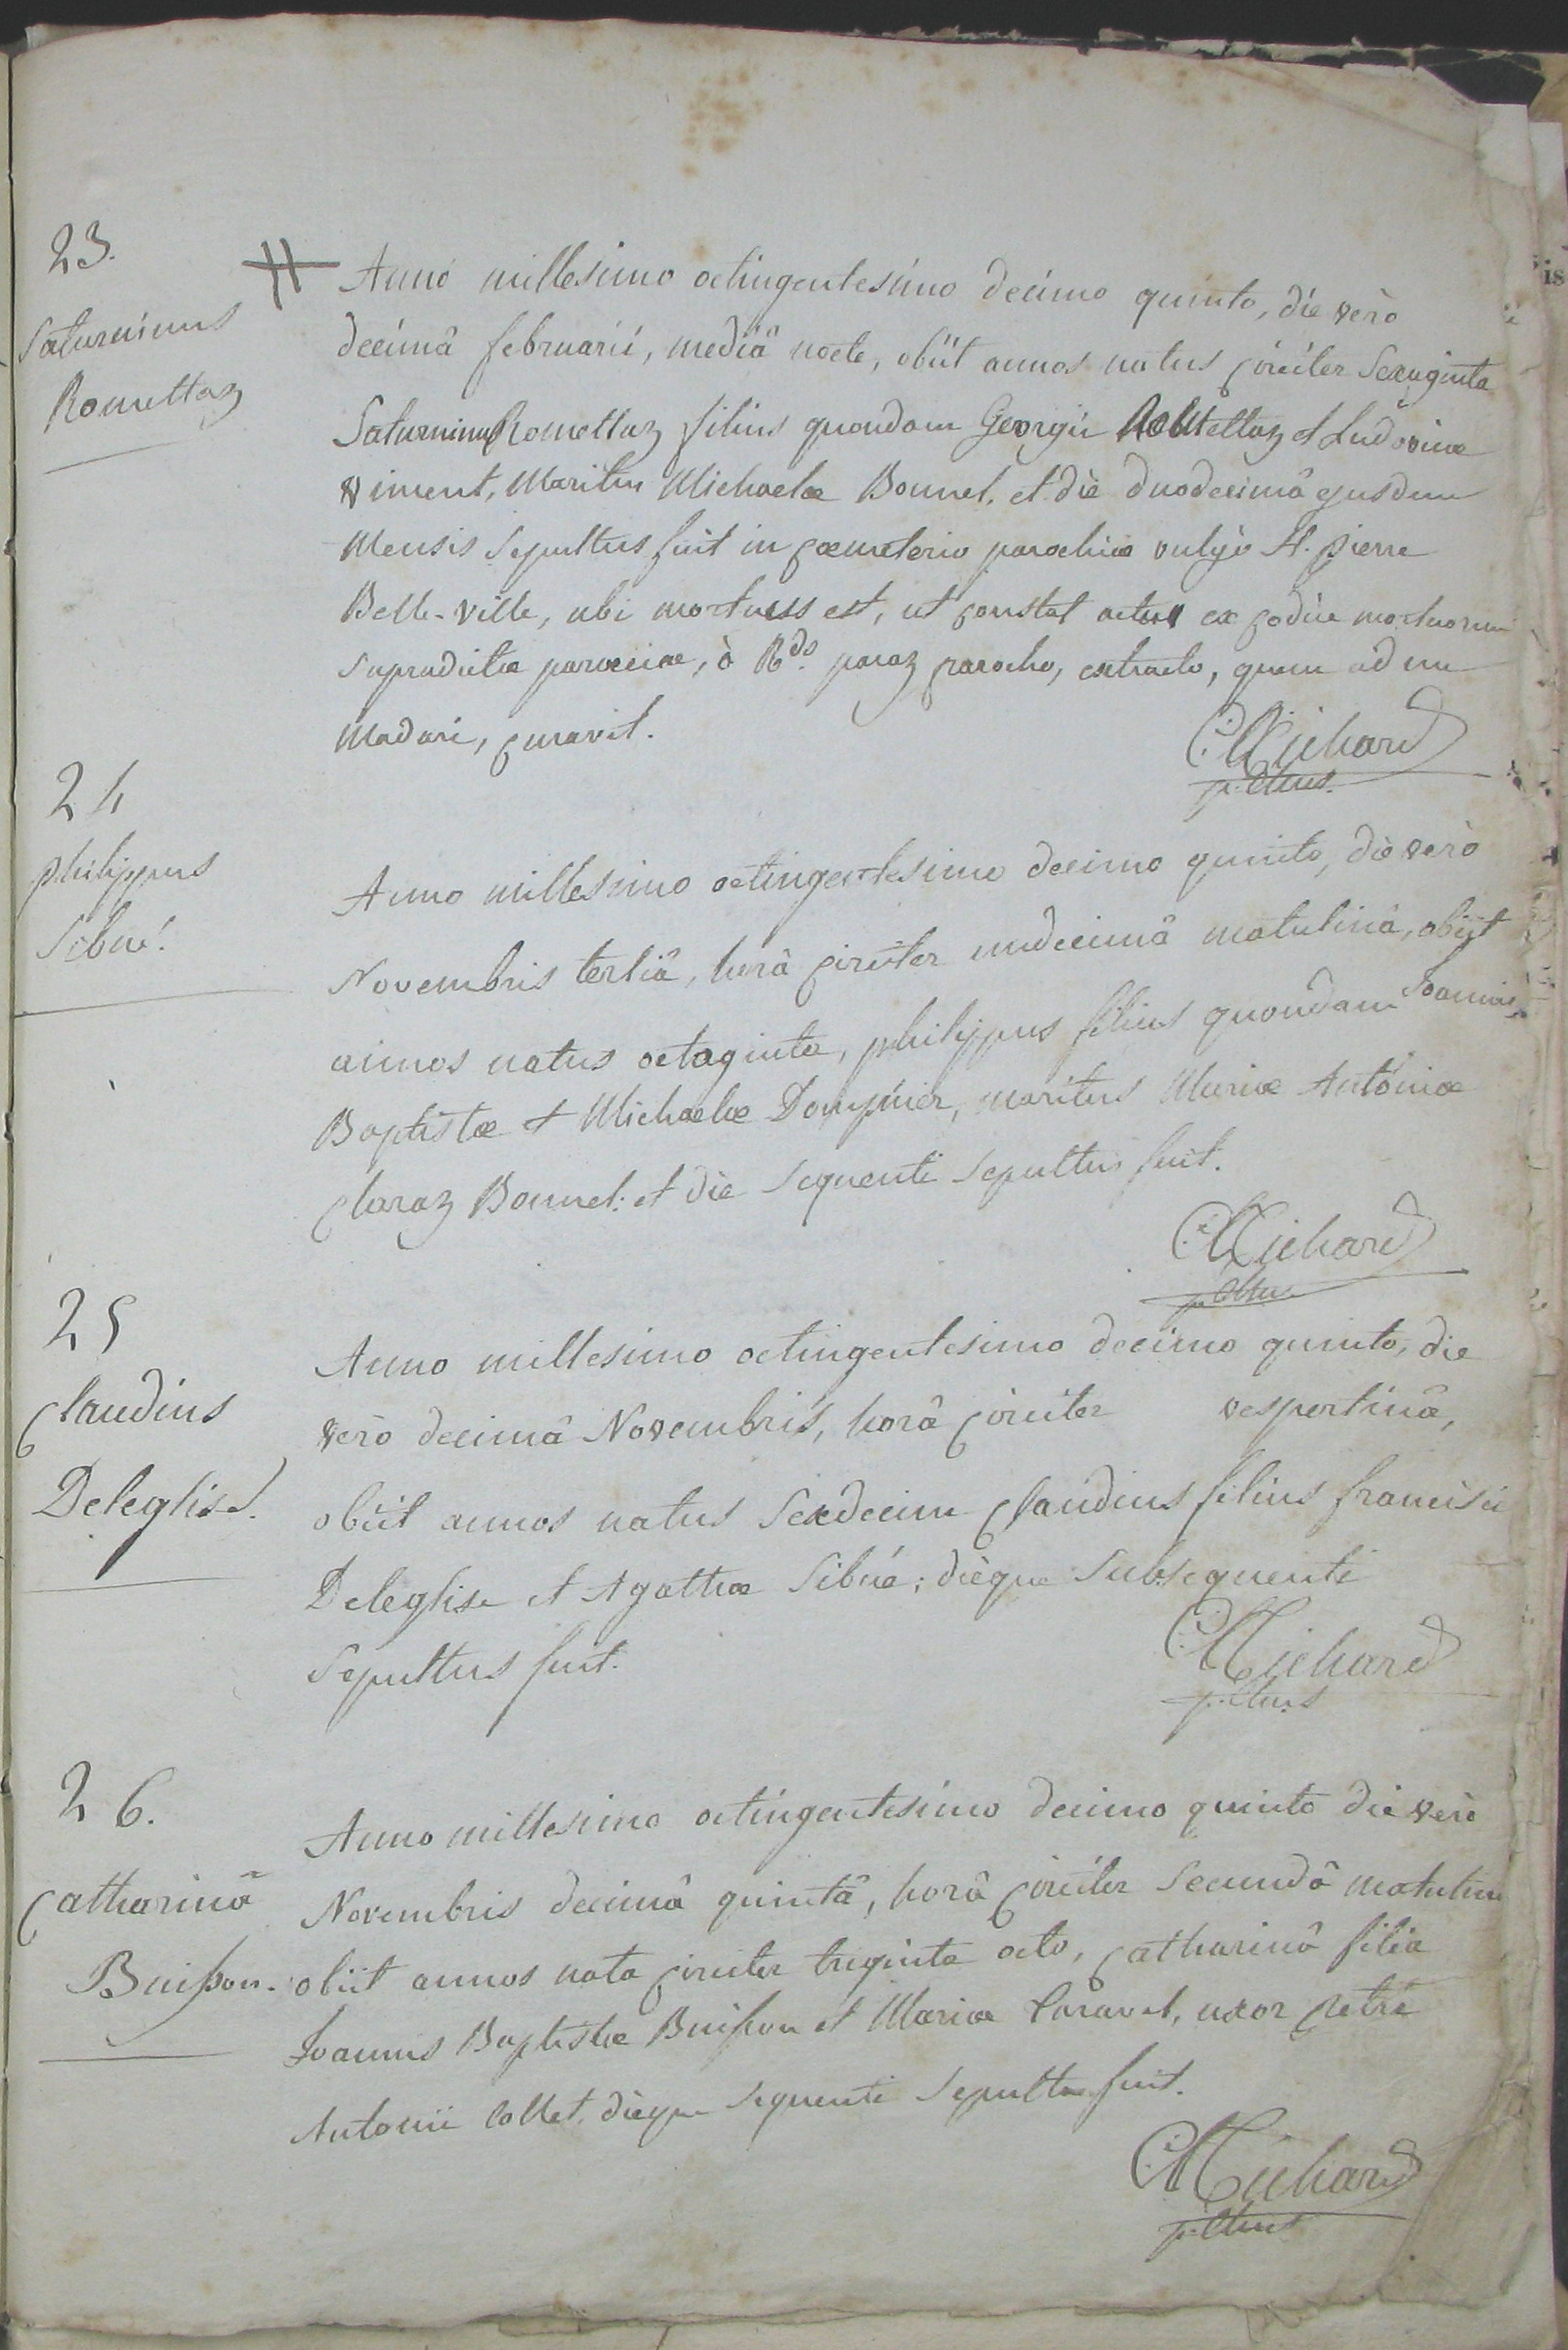 23.
Saturninus
Romettaz
Anno millesimo octingentesimo decimo quinto, die verò
decimâ februarii, mediâ nocte, obiit annos natus circiter sexaginta
Saturninus Romettaz filius quondam Georgii Romettaz et Ludovicæ
viment, maritus Michaelæ Bonnel, et die duodecimâ ejusdem
mensis sepultus fuit in cœmeterio parochiæ vulgò St. pierre
Belle-ville, ubi mortuus est, ut constat actu ex codice mortuorum
supradictæ parœciæ, à Rdo. paraz parocho, extracto, quem ad me
madari, curavit.
C. Richard
24
philippus
Sibué.
Anno millesimo octingentesimo decimo quinto, die verò
Novembris tertiâ, horâ circiter undecimâ matutinâ, obiit
annos natus octaginta, philippus filius quondam Joannis
Baptistæ et Michaelæ Dompnier, maritus Mariæ Antoniæ
Claraz Bonnel: et die sequenti sepultus fuit.
C. Richard
25
Claudius
Deleglise.
Anno millesimo octingentesimo decimo quinto, die
verò decimâ Novembris, horâ circiter vespertinâ,
obiit annos natus sexdecim Claudius filius francisci
Deleglise et Agathæ Sibué; dièque subsequenti
sepultus fuit.
C. Richard
26.
Catharinâ
Buisson.
Anno millesimo octingentesimo decimo quinto die verò
Novembris decimâ quintâ, horâ circiter secundâ matutinâ
obiit annos nata circiter triginta octo, Catharinâ filia
Joannis Baptistæ Buisson et Mariæ Caravel, uxor petri
Antonii Collet, dièque sequenti sepulta fuit.
C. Richard